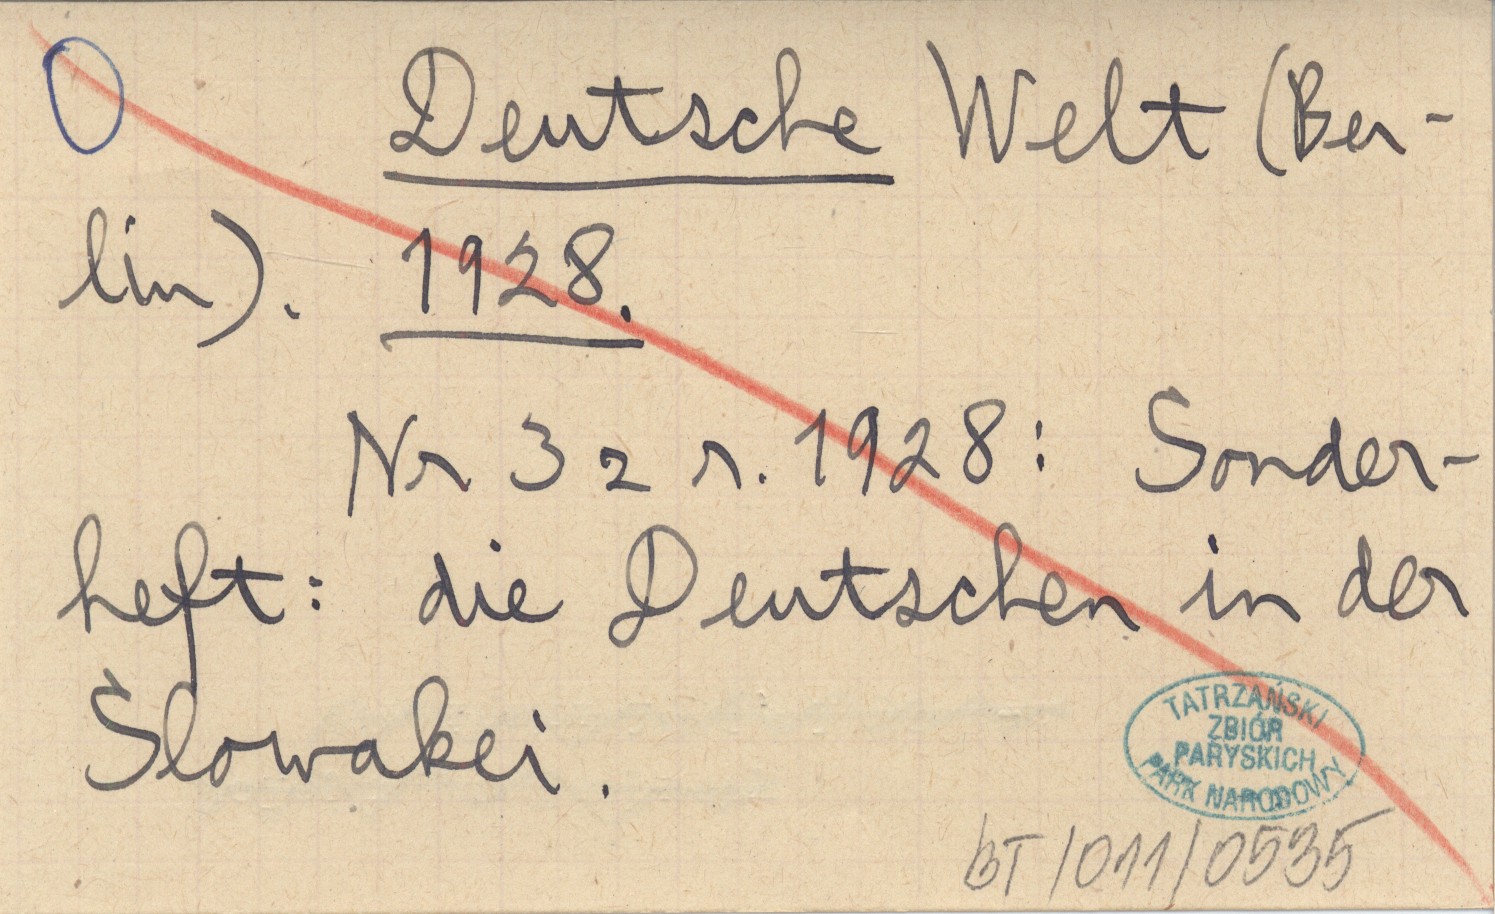 0 Deutsche Welt (Ber-
lin). 1928.
Nr 3 z r. 1928: Sonder-
heft: die Deutschen in der
Slowakei.
TATRZAŃSKI
ZBIÓR
PARYSKICH
PARK NARODOWY
BT/011/0535